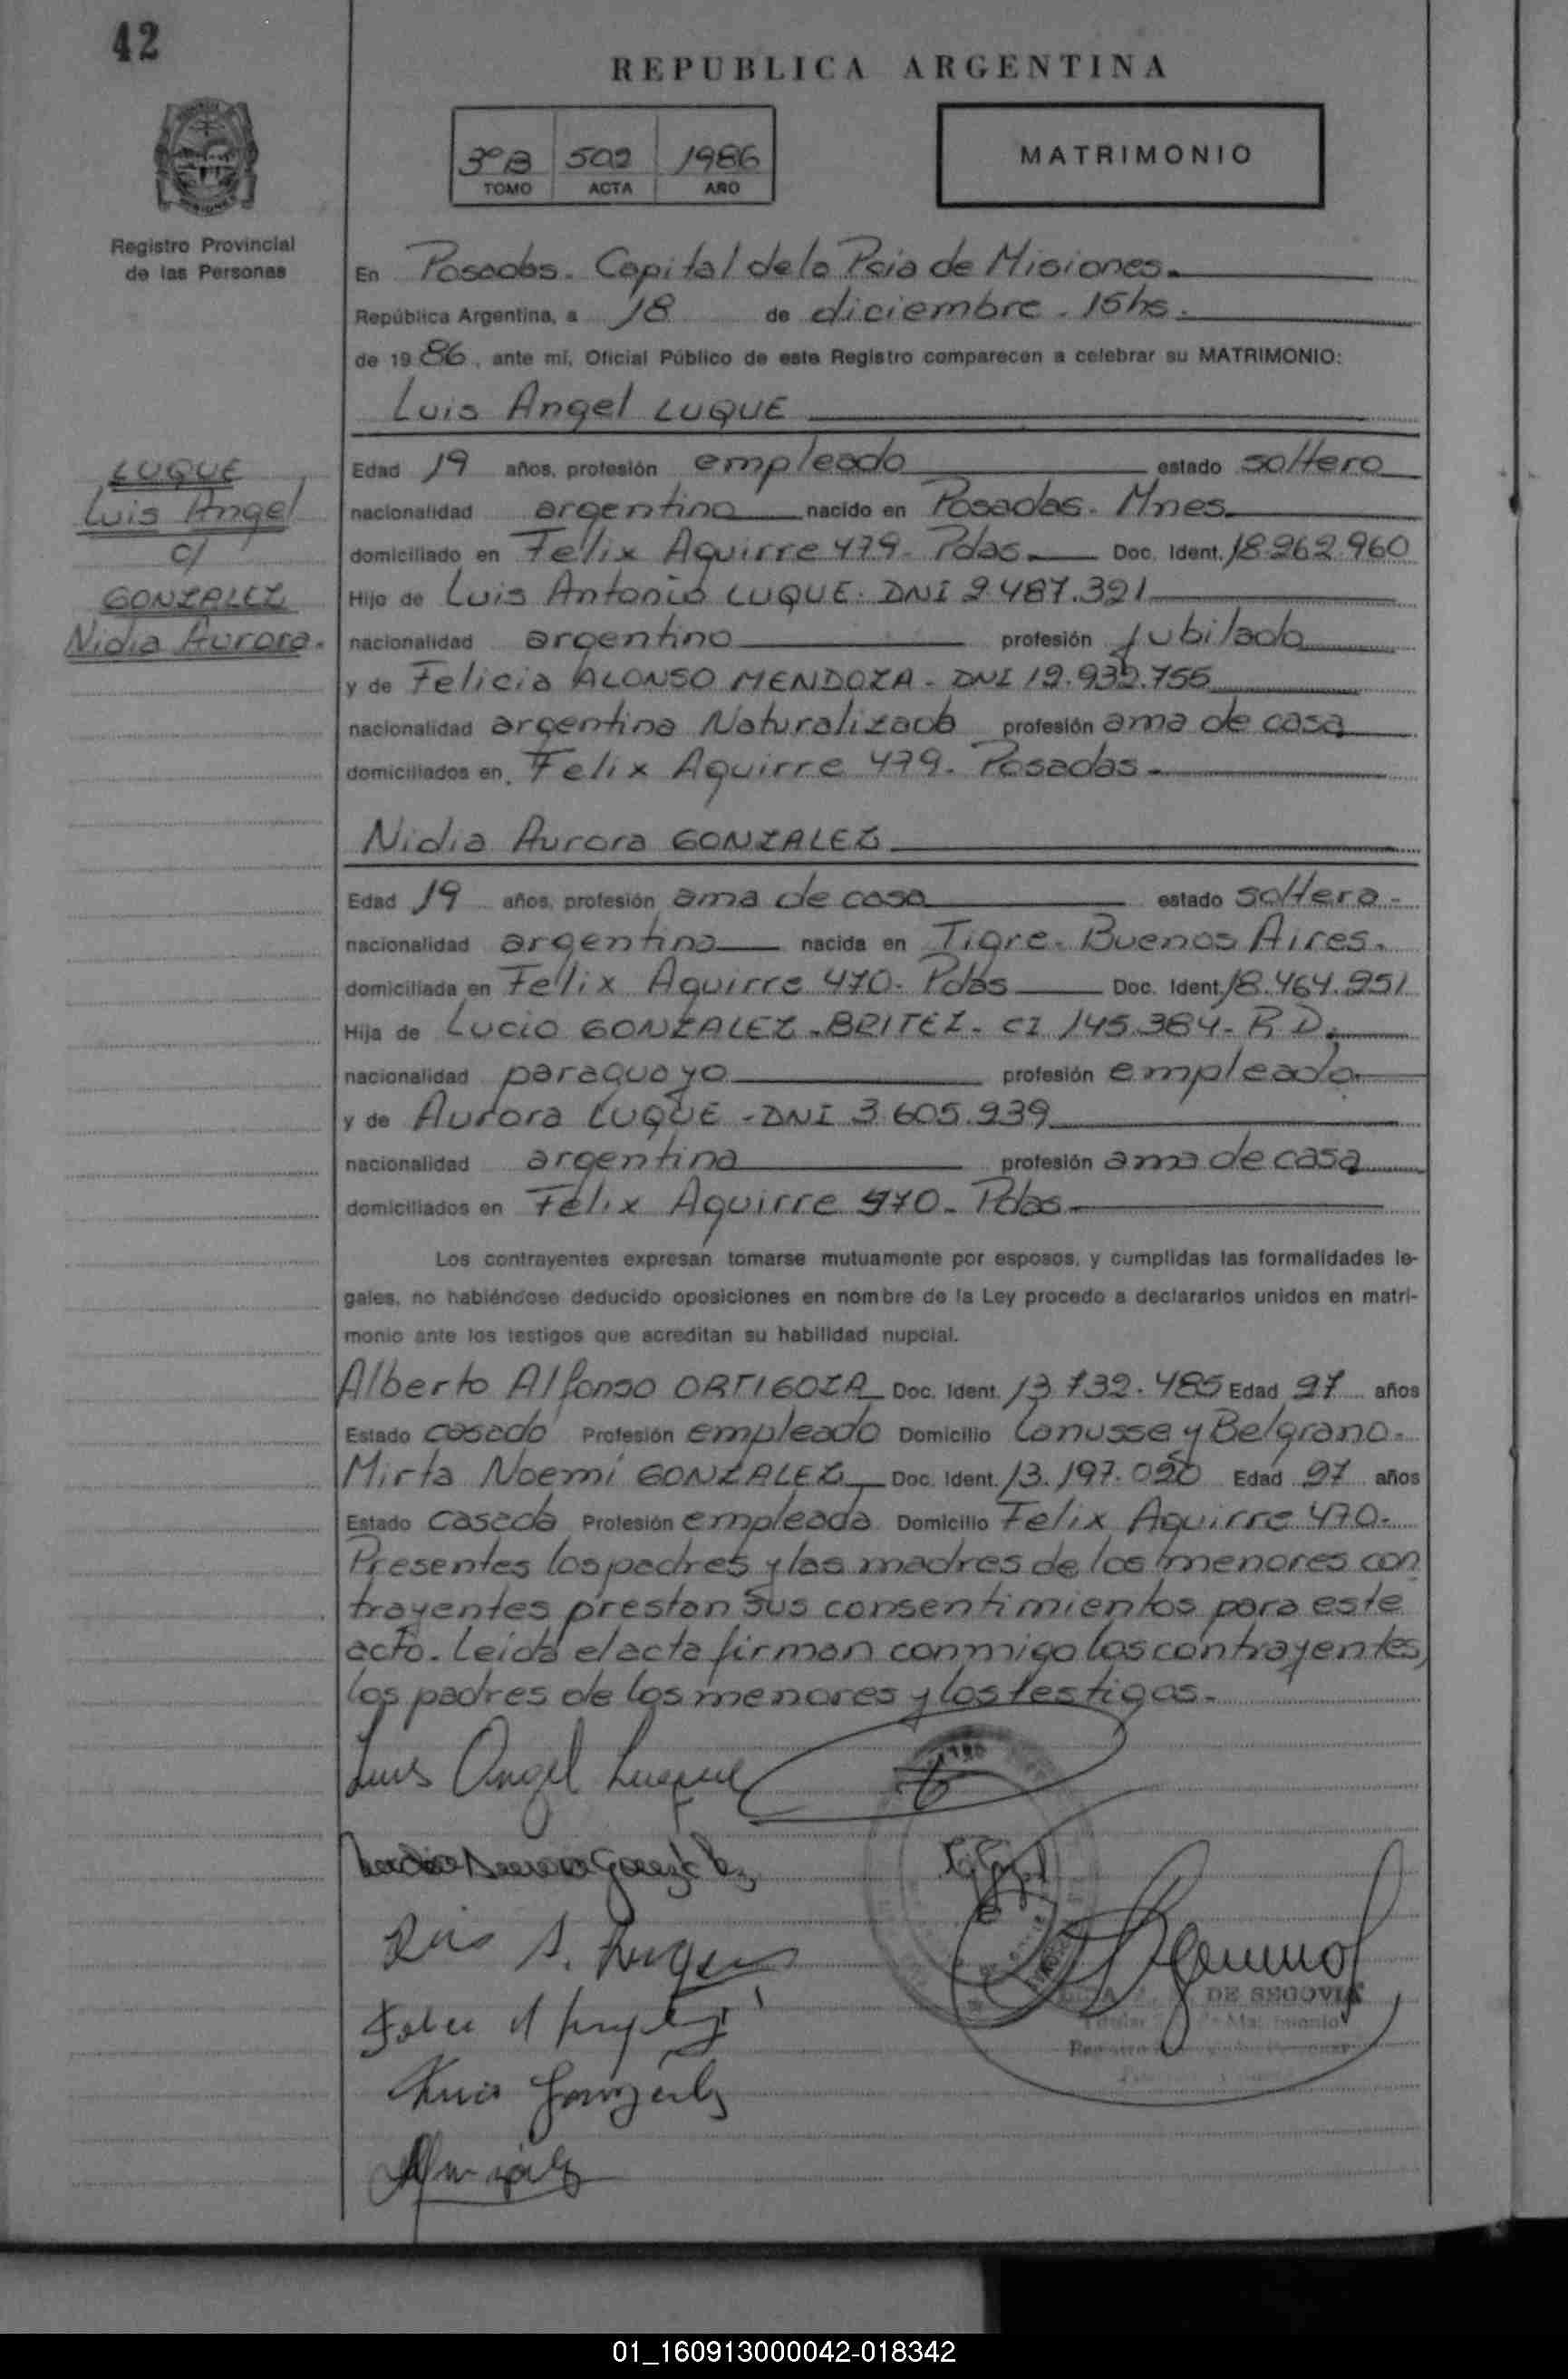 42
REPUBLICA ARGENTINA
3º B 502 1986
TOMO ACTA AÑO
MATRIMONIO
Registro Provincial
de las Personas
En Posadas. Capital de la Pcia de Misiones.
República Argentina, a 18 de diciembre. 15hs.
de 1986, ante mí, Oficial Público de este Registro comparecen a celebrar su MATRIMONIO:
Luis Angel LUQUE
LUQUE
Luis Angel
c/
GONZALEZ
Nidia Aurora.
Edad 19 años, profesión empleado estado soltero
nacionalidad argentino nacido en Posadas. Mnes.
domiciliado en Felix Aguirre 479. Pdas. Doc. Ident. 18.262.960
Hijo de Luis Antonio LUQUE. DNI 2.487.321
nacionalidad argentino profesión jubilado
y de Felicia ALONSO MENDOZA - DNI 12.932.755
nacionalidad argentina Naturalizada profesión ama de casa
domiciliados en Felix Aguirre 479. Posadas.
Nidia Aurora GONZALEZ
Edad 19 años, profesión ama de casa estado soltera.
nacionalidad argentina nacida en Tigre. Buenos Aires.
domiciliada en Felix Aguirre 470. Pdas Doc. Ident. 18.464.251
Hija de Lucio GONZALEZ BRITEZ. CI 145.384. R.D.
nacionalidad paraguayo profesión empleado.
y de Aurora LUQUE - DNI 3.605.239
nacionalidad argentina profesión ama de casa
domiciliados en Felix Aguirre 470. Pdas.
Los contrayentes expresan tomarse mutuamente por esposos, y cumplidas las formalidades le-
gales, no habiéndose deducido oposiciones en nombre de la Ley procedo a declararlos unidos en matri-
monio ante los testigos que acreditan su habilidad nupcial.
Alberto Alfonso ORTIGOZA Doc. Ident. 13.732.485 Edad 27 años
Estado casado Profesión empleado Domicilio Lanusse y Belgrano.
Mirta Noemí GONZALEZ Doc. Ident. 13.197.020 Edad 27 años
Estado casada Profesión empleada Domicilio Felix Aguirre 470.
Presentes los padres y las madres de los menores con
trayentes prestan sus consentimientos para este
acto. Leída el acta firman conmigo los contrayentes,
los padres de los menores y los testigos.
Luis Angel Luque
DE SEGOVIA
Titular
01_160913000042-018342